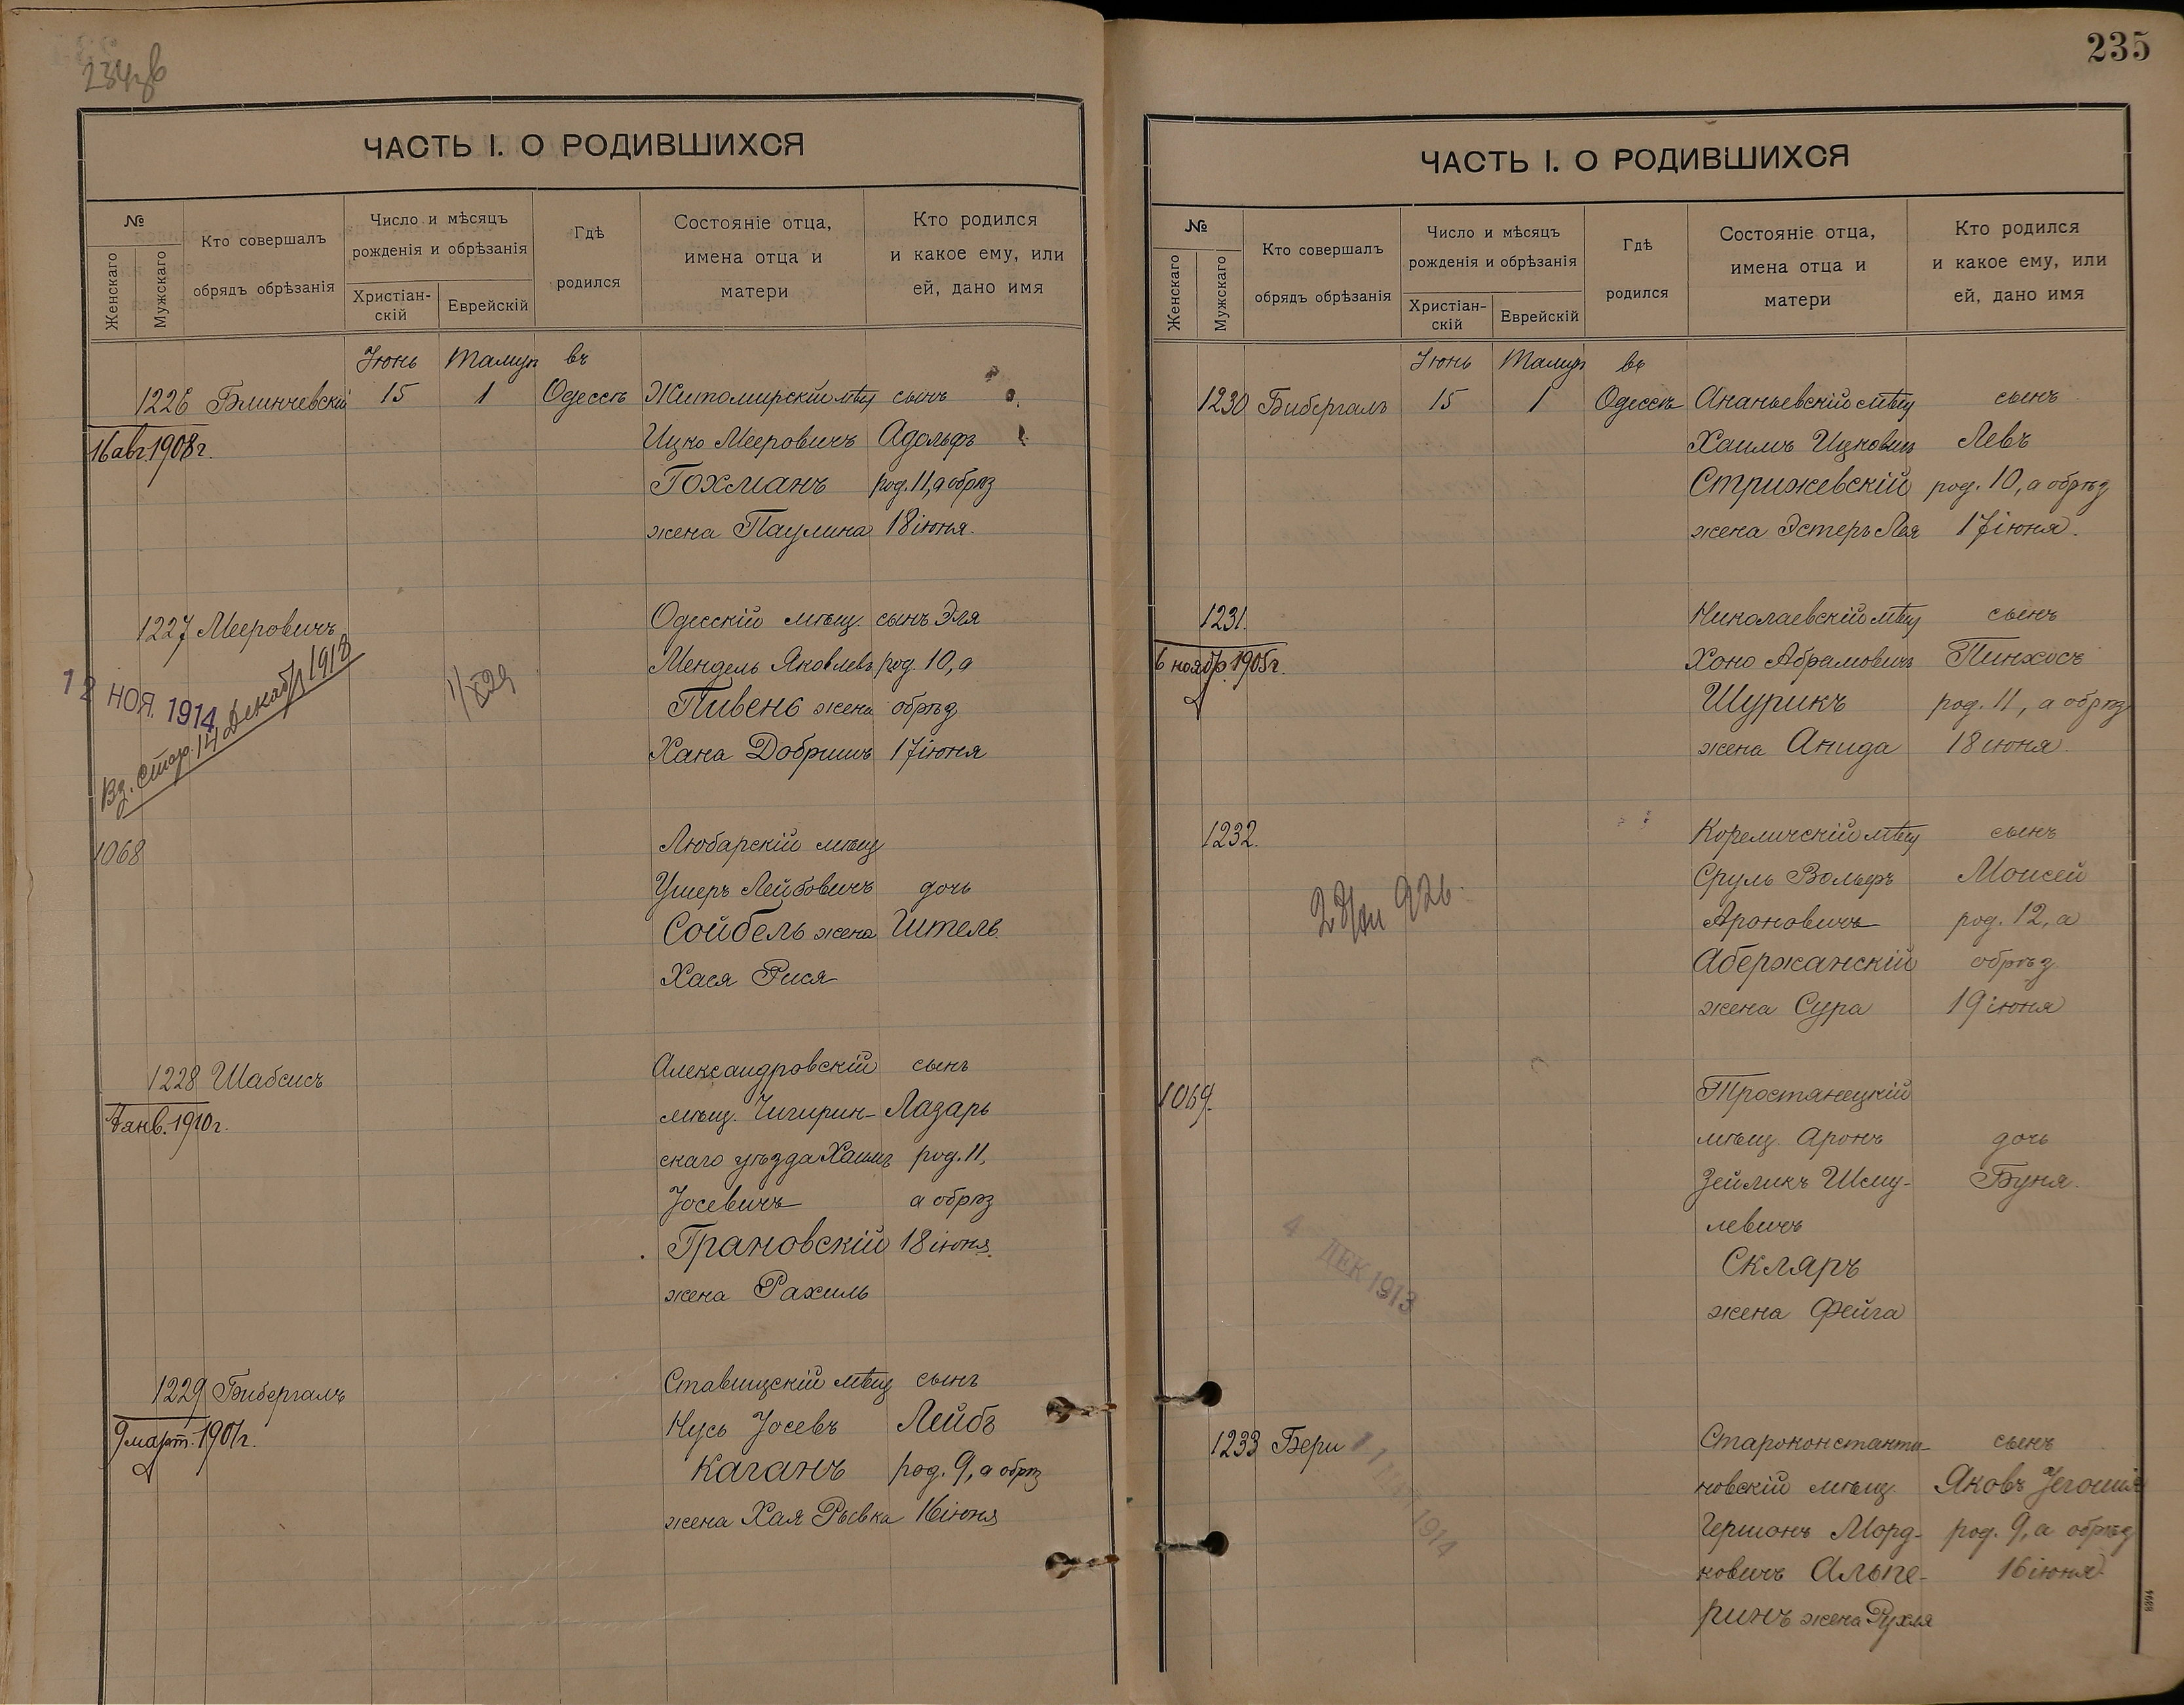 ЧАСТЬ I. О РОДИВШИХСЯ
№
Женскаго
Мужскаго
Кто совершалъ
обрядъ обрѣзанія
Число и мѣсяцъ
рожденія и обрѣзанія
Христіан-
скій
Еврейскій
Гдѣ
родился
Состояніе отца,
имена отца и
матери
Кто родился
и какое ему, или
ей, дано имя
Іюнь Тамуз въ
1226 Блинчевскій 15 1 Одессѣ Житомирскій мѣщ сынъ
16 авг. 1908 г. Ицко Мееровичъ Адольфъ
Гохманъ род. 11, а обрѣз
жена Паулина 18 іюня.
1227 Мееровичъ Одесскій мѣщ. сынъ Эля
Мендель Яковлевъ род. 10, а
12 НОЯ. 1914
Пивень жена обрѣз
Вз. Стар. 14 Декабр 1918
Хана Добришъ 17 іюня
1068 Любарскій мѣщ
Ушеръ Лейбовичъ дочь
Сойбель жена Итель
Хася Рися
1228 Шабсисъ Александровскій сынъ
янв. 1910 г. мѣщ. Чигирин- Лазарь
скаго уѣзда Хаимъ род. 11,
Іосевичъ а обрѣз
Грановскій 18 іюня.
жена Рахиль
1229 Бибергалъ Ставищскій мѣщ сынъ
9 март. 1907 г. Нусь Іосевъ Лейбъ
Каганъ род. 9, а обрѣз
жена Хая Рывка 16 іюня
235
ЧАСТЬ I. О РОДИВШИХСЯ
№
Женскаго
Мужскаго
Кто совершалъ
обрядъ обрѣзанія
Число и мѣсяцъ
рожденія и обрѣзанія
Христіан-
скій
Еврейскій
Гдѣ
родился
Состояніе отца,
имена отца и
матери
Кто родился
и какое ему, или
ей, дано имя
Іюнь Тамуз въ
1230 Бибергалъ 15 1 Одессѣ Ананьевскій мѣщ сынъ
Хаимъ Ицковичъ Левъ
Стрижевскій род. 10, а обрѣз
жена Эстеръ Лея 17 іюня.
1231. Николаевскій мѣщ сынъ
6 ноябр. 1905 г. Хоно Абрамовичъ Пинхосъ
Шурикъ род. 11, а обрѣз
жена Анида 18 іюня.
1232. Кореличскій мѣщ сынъ
Сруль Вольфъ Моисей
Ароновичъ род. 12, а
Абержанскій обрѣз
жена Сура 19 іюня
1069. Тростянецкій
мѣщ. Аронъ дочь
Зейликъ Шму- Буня.
левичъ
4 ДЕК 1913
Скляръ
жена Фейга
1233 Бери Староконстанти- сынъ
1914
новскій мѣщ. Яковъ Іегошіе
Гершонъ Морд- род. 9, а обрѣз
ковичъ Альпе- 16 іюня.
ринъ жена Рухля